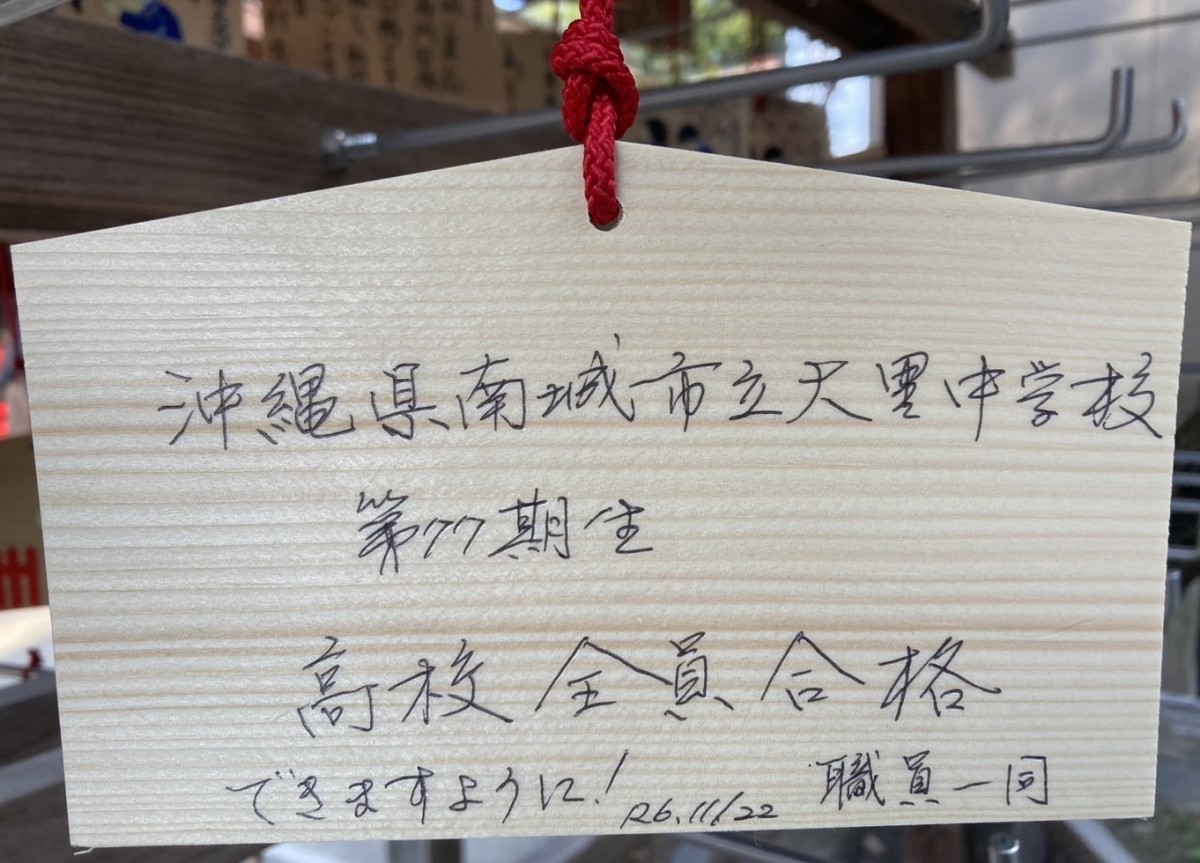 沖縄県南城市立大里中学校
第77期生
高校全員合格
できますように! R6.11/22 職員一同